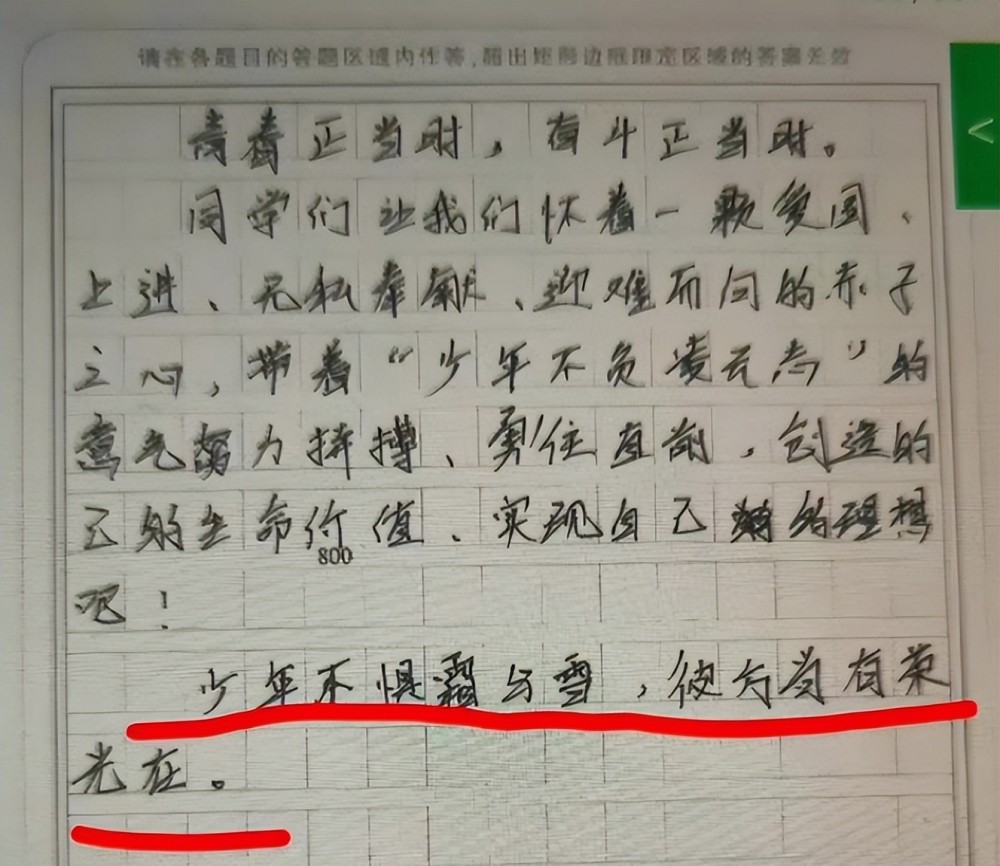 请在各题目的答题区域内作答,超出矩形边框限定区域的答案无效
青春正当时，奋斗正当时。
同学们让我们怀着一颗爱国、
上进、无私奉献、迎难而向的赤子
之心，带着“少年不负凌云志”的
意气努力拼搏、勇往直前，创造的
己的生命价值、实现自己的理想
800
吧！
少年不惧霜与雪，彼方尚有荣
光在。
<